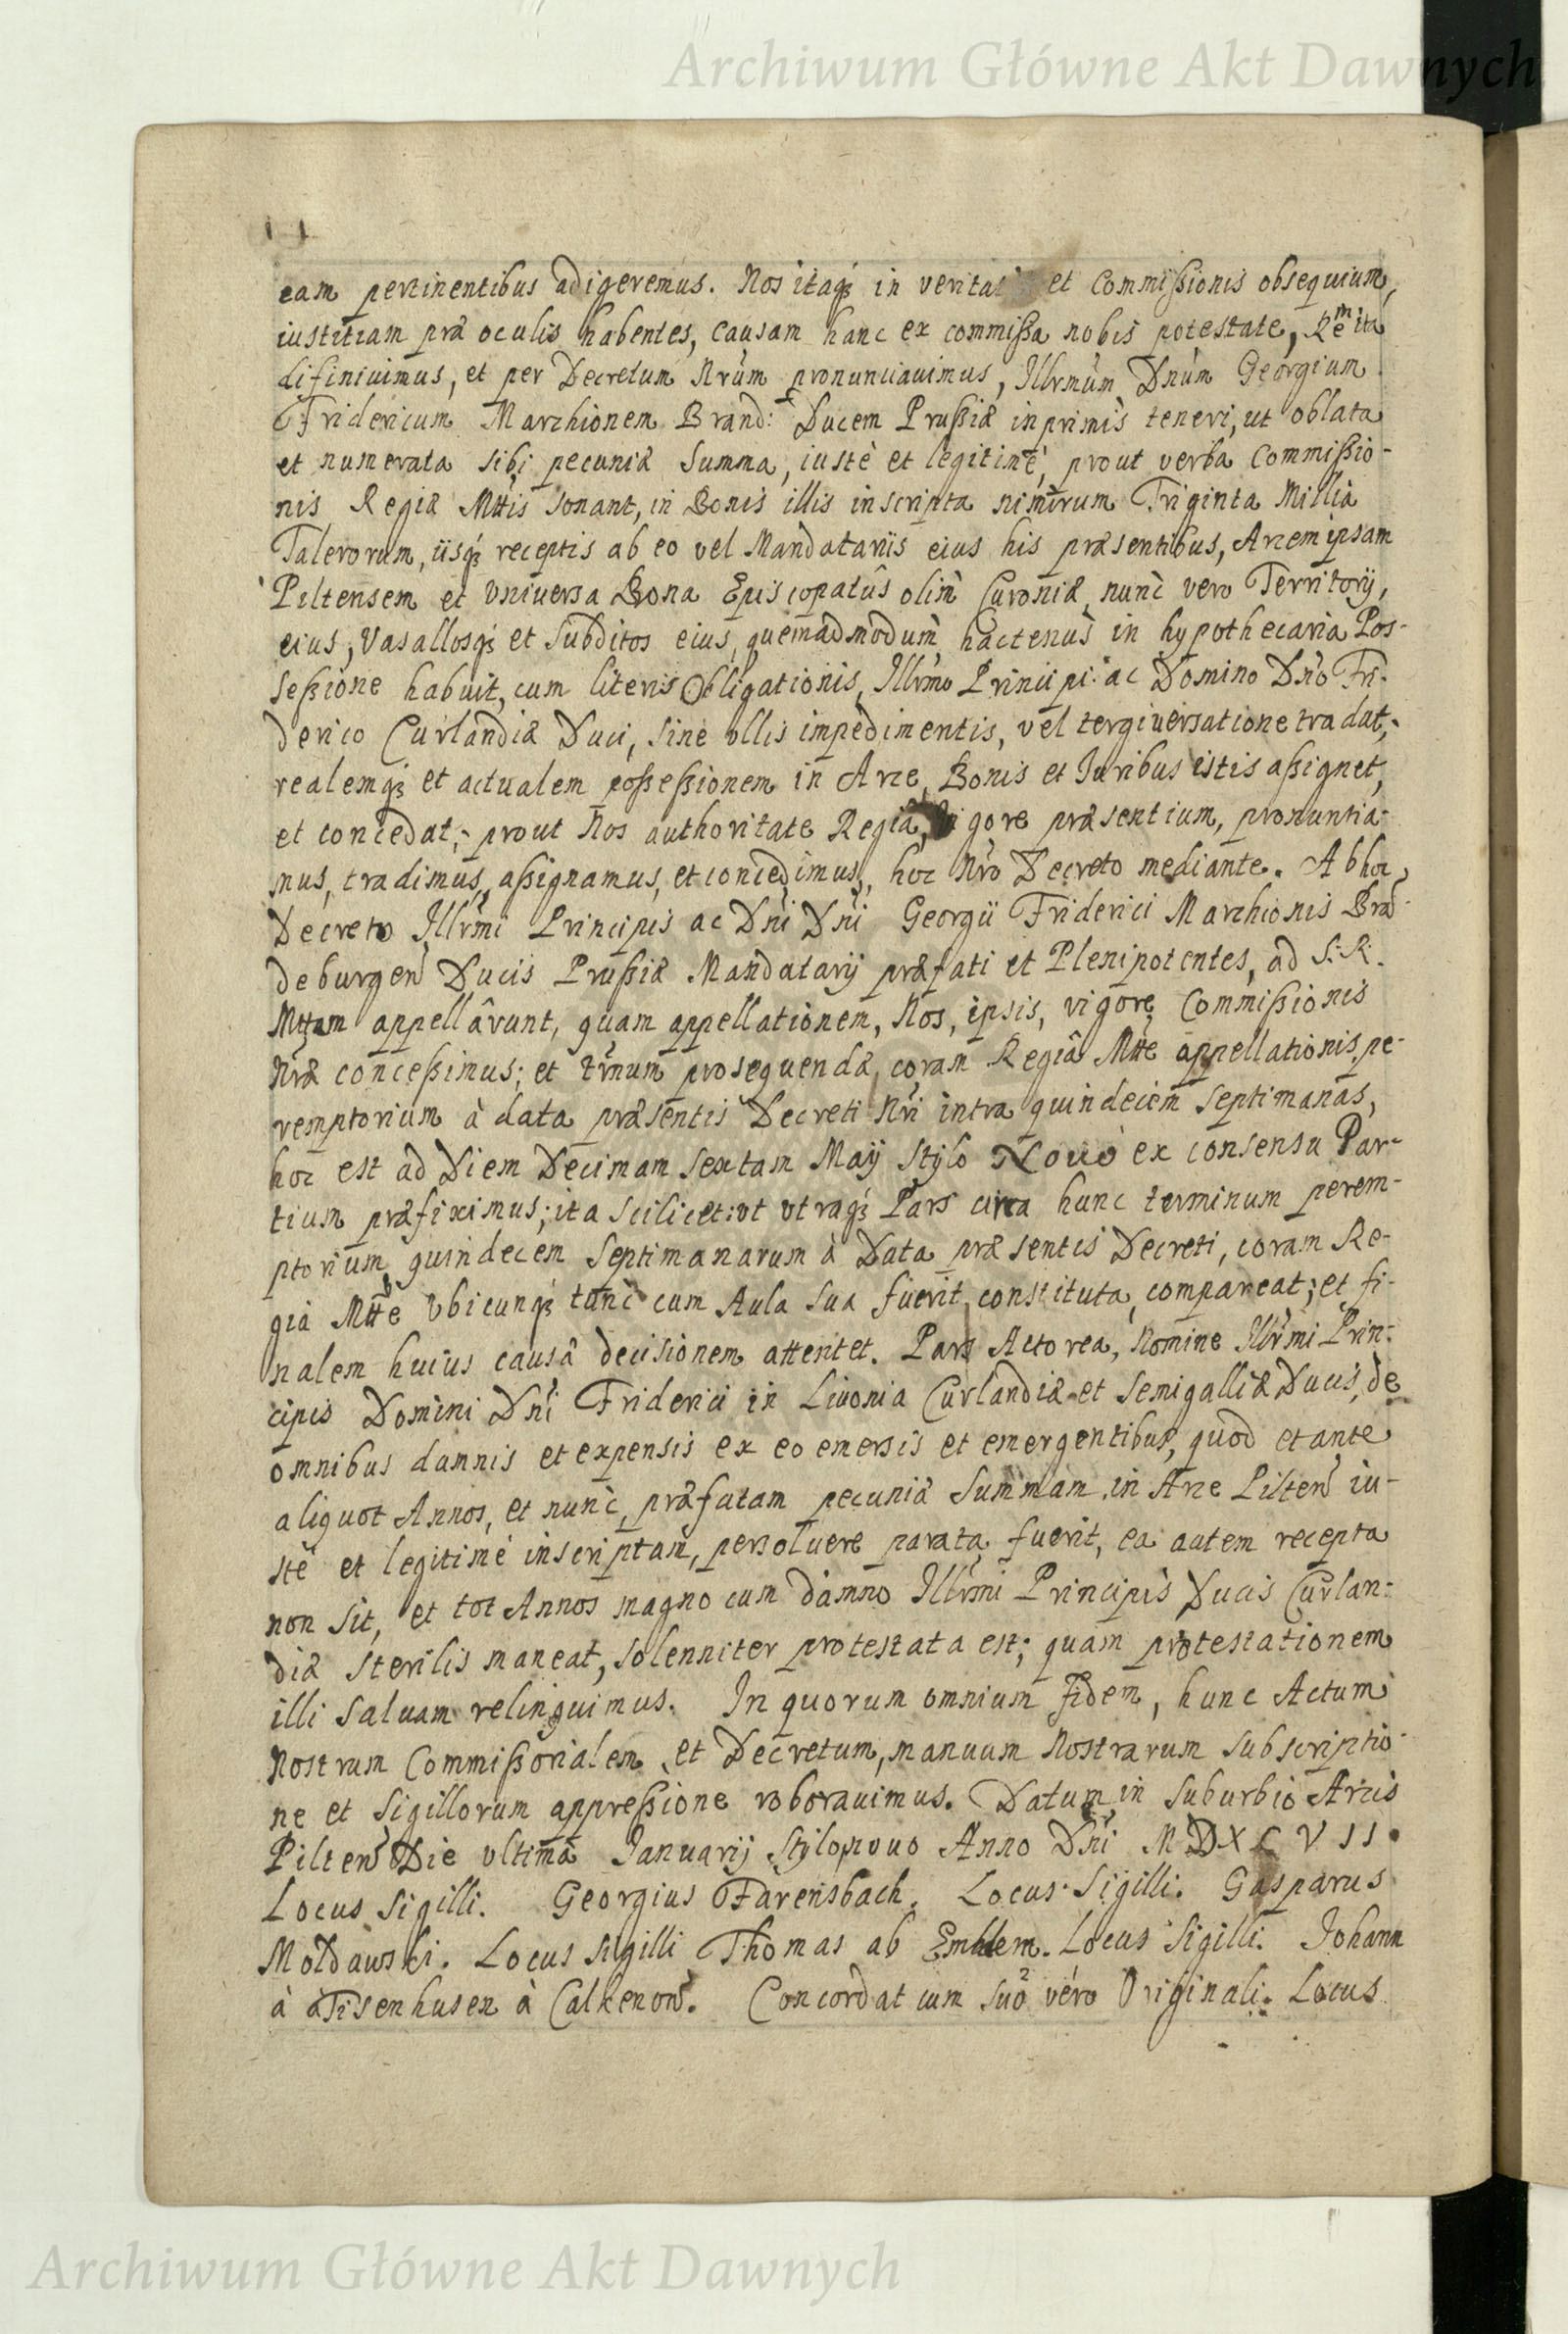 Archiwum Główne Akt Dawnych
eam pertinentibus adigeremus. Nos itaqꝫ in veritatis et Commißionis obsequium,
iustitiam præ oculis habentes, causam hanc ex commißa nobis potestate, Rem ita
difiniuimus, et per Decretum Nrum pronunciauimus, Illrmum Dnum Georgium
Fridericum Marchionem Brand: Ducem Prußiæ inprimis teneri, ut oblata
et numerata sibi pecuniæ Summa, iustè et legitimè, prout verba Commißio-
nis Regiæ Mttis sonant, in Bonis illis inscripta nimirum Triginta Millia
Talerorum, iisqꝫ receptis ab eo vel Mandatariis eius his præsentibus, Arcem ipsam
Piltensem et Vniuersa Bona Episcopatûs olim Curoniæ, nunc vero Territorij,
eius, Vasallosqꝫ et Subditos eius, quemadmodum hactenus in hypothecaria Pos-
seßione habuit, cum literis Obligationis, Illrmo Principi ac Domino Dno Fri-
derico Curlandiæ Duci, sine ullis impedimentis, vel tergiuersatione tradat,
realemqꝫ et actualem poßeßionem in Arce, Bonis et Iuribus istis aßignet,
et concedat; prout Nos authoritate Regiâ, vigore præsentium, pronuntia-
mus, tradimus, aßignamus, et concedimus, hoc Nro Decreto mediante. Ab hoc
Decreto Illrmi Principis ac Dni Dni Georgii Friderici Marchionis Bran-
deburgen Ducis Prußiæ Mandatarij præfati et Plenipotentes, ad S: R:
Mttem appellârunt, quam appellationem, Nos, ipsis, vigore Commißionis
Nræ conceßimus; et trnum prosequendæ, coram Regiâ Mtte appellationis, pe-
remptorium à data præsentis Decreti Nri intra quindecim septimanas,
hoc est ad Diem Decimam sextam Maij Stylo Nouo ex consensu Par-
tium præfiximus; ita scilicet: ut utraqꝫ Pars circa hunc terminum perem-
ptorium quindecem Septimanarum à Data præsentis Decreti, coram Re-
gia Mtte Vbicunqꝫ tunc cum Aula sua fuerit constituta, compareat; et fi-
nalem huius causâ decisionem attentet. Pars Actorea, Nomine Illrmi Prin-
cipis Domini Dni Friderici in Liuonia Curlandiæ et Semigalliæ Ducis, de
omnibus damnis et expensis ex eo emersis et emergentibus, quod et ante
aliquot Annos, et nunc, præfatam pecuniæ Summam, in Arce Pilten iu-
stè et legitimè inscriptam, persoluere parata fuerit, ea autem recepta
non sit, et tot Annos magno cum damno Illrmi Principis Ducis Curlan-
diæ sterilis maneat, solenniter protestata est; quam protestationem
illi saluam relinquimus. In quorum omnium fidem, hunc Actum
Nostrum Commißorialem et Decretum, manuum Nostrarum subscriptio-
ne et Sigillorum appreßione roborauimus. Datum in suburbio Arcis
Pilten Die ultima Januarij Stylo nouo Anno Dni MDXCVII.
Locus Sigilli. Georgius Farensbach. Locus Sigilli. Gasparus
Moldawski. Locus sigilli Thomas ab Emblem. Locus Sigilli. Johann
à Tisenhusen à Calkenow. Concordat cum suo vero Originali. Locus
Archiwum Główne Akt Dawnych